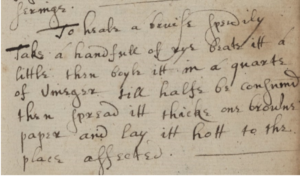 seringe.
To heale a bruise speedily
Take a handfull of rye beate itt a
little then boyle itt in a quarte
of Vineger till halfe be consumd
then spread itt thicke one browne
paper and lay itt hott to the
place affected.